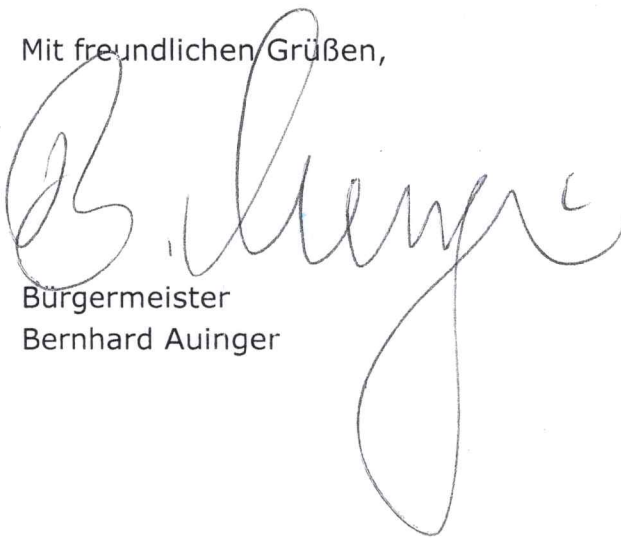 Mit freundlichen Grüßen,
B. Auinger
Bürgermeister
Bernhard Auinger